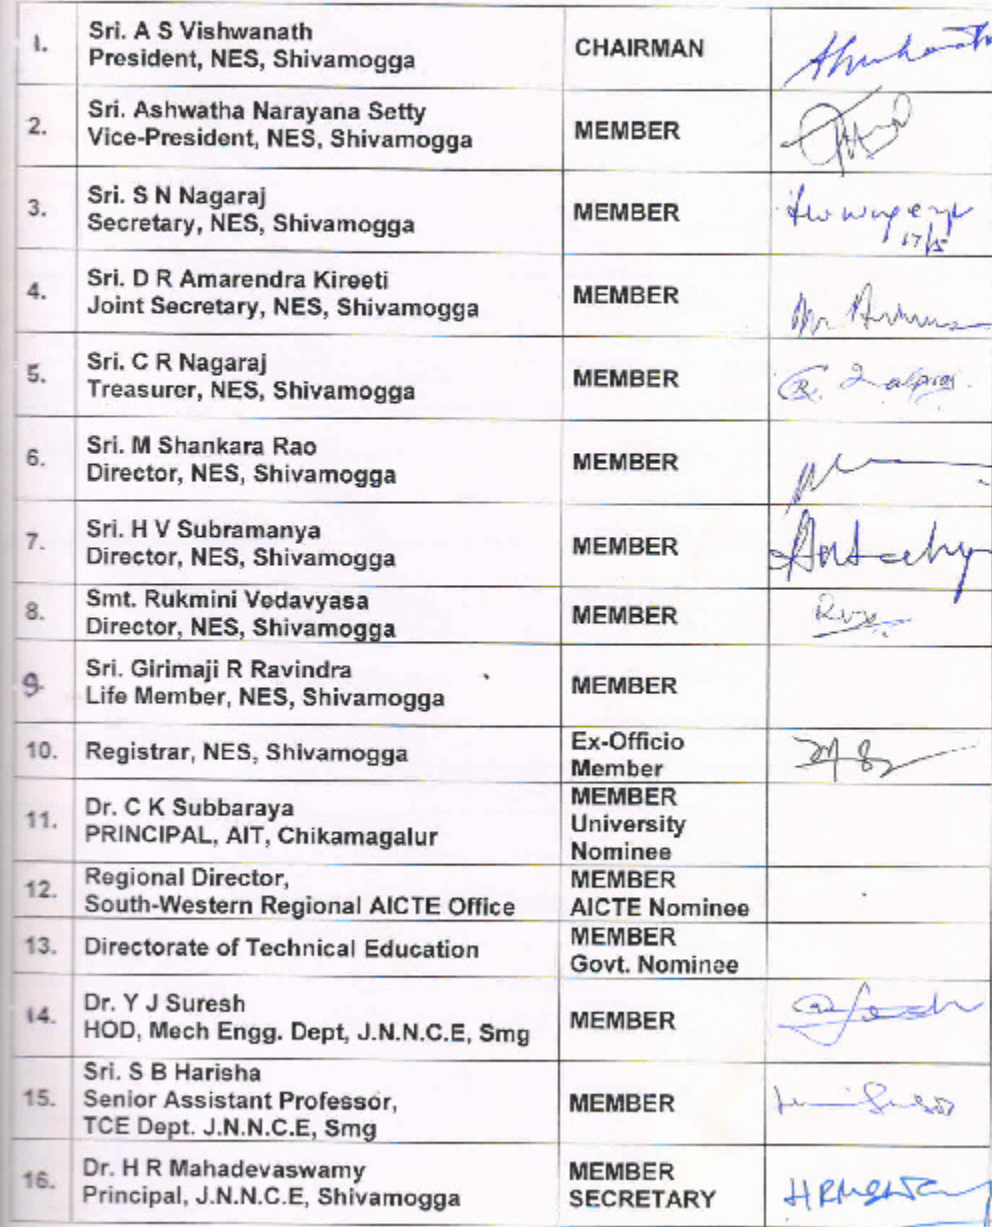 1. Sri. A S Vishwanath
President, NES, Shivamogga
CHAIRMAN
2. Sri. Ashwatha Narayana Setty
Vice-President, NES, Shivamogga
MEMBER
3. Sri. S N Nagaraj
Secretary, NES, Shivamogga
MEMBER
17/5
4. Sri. D R Amarendra Kireeti
Joint Secretary, NES, Shivamogga
MEMBER
5. Sri. C R Nagaraj
Treasurer, NES, Shivamogga
MEMBER
6. Sri. M Shankara Rao
Director, NES, Shivamogga
MEMBER
7. Sri. H V Subramanya
Director, NES, Shivamogga
MEMBER
8. Smt. Rukmini Vedavyasa
Director, NES, Shivamogga
MEMBER
9. Sri. Girimaji R Ravindra
Life Member, NES, Shivamogga
MEMBER
10. Registrar, NES, Shivamogga
Ex-Officio
Member
11. Dr. C K Subbaraya
PRINCIPAL, AIT, Chikamagalur
MEMBER
University
Nominee
12. Regional Director,
South-Western Regional AICTE Office
MEMBER
AICTE Nominee
13. Directorate of Technical Education
MEMBER
Govt. Nominee
14. Dr. Y J Suresh
HOD, Mech Engg. Dept, J.N.N.C.E, Smg
MEMBER
15. Sri. S B Harisha
Senior Assistant Professor,
TCE Dept. J.N.N.C.E, Smg
MEMBER
16. Dr. H R Mahadevaswamy
Principal, J.N.N.C.E, Shivamogga
MEMBER
SECRETARY